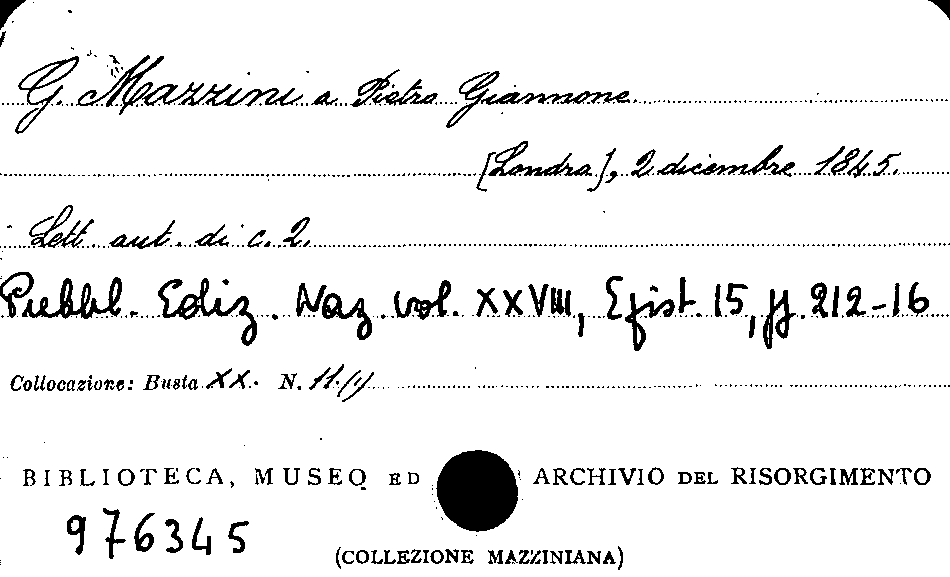 G. Mazzini a Pietro Giannone.
[Londra], 2 dicembre 1845.
Lett. aut. di c. 2.
Pubbl. Ediz. Naz. vol. XXVIII, Epist. 15, pp. 212-16
Collocazione: Busta XX. N. 11.(1)
BIBLIOTECA, MUSEO ED ARCHIVIO DEL RISORGIMENTO
976345
(COLLEZIONE MAZZINIANA)